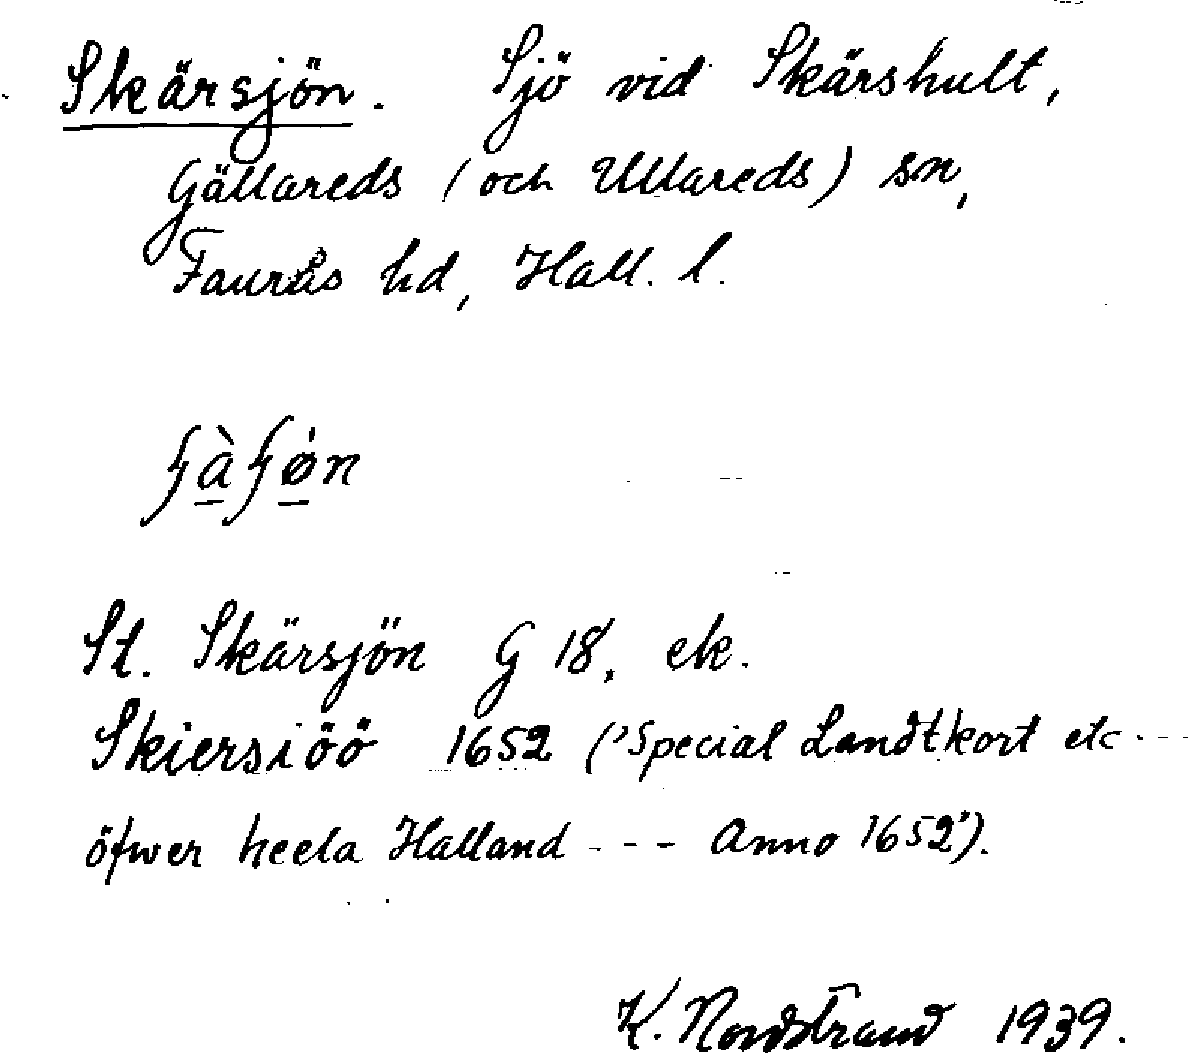 Skärsjön. Sjö vid Skärshult,
Gällareds (och Ullareds) sn,
Faurås hd, Hall. l.
St. Skärsjön G 18, ek.
Skiersiöö 1652 ('Special Landtkort etc.--
öfwer heela Halland --- Anno 1652').
K. Nordstrand 1939.